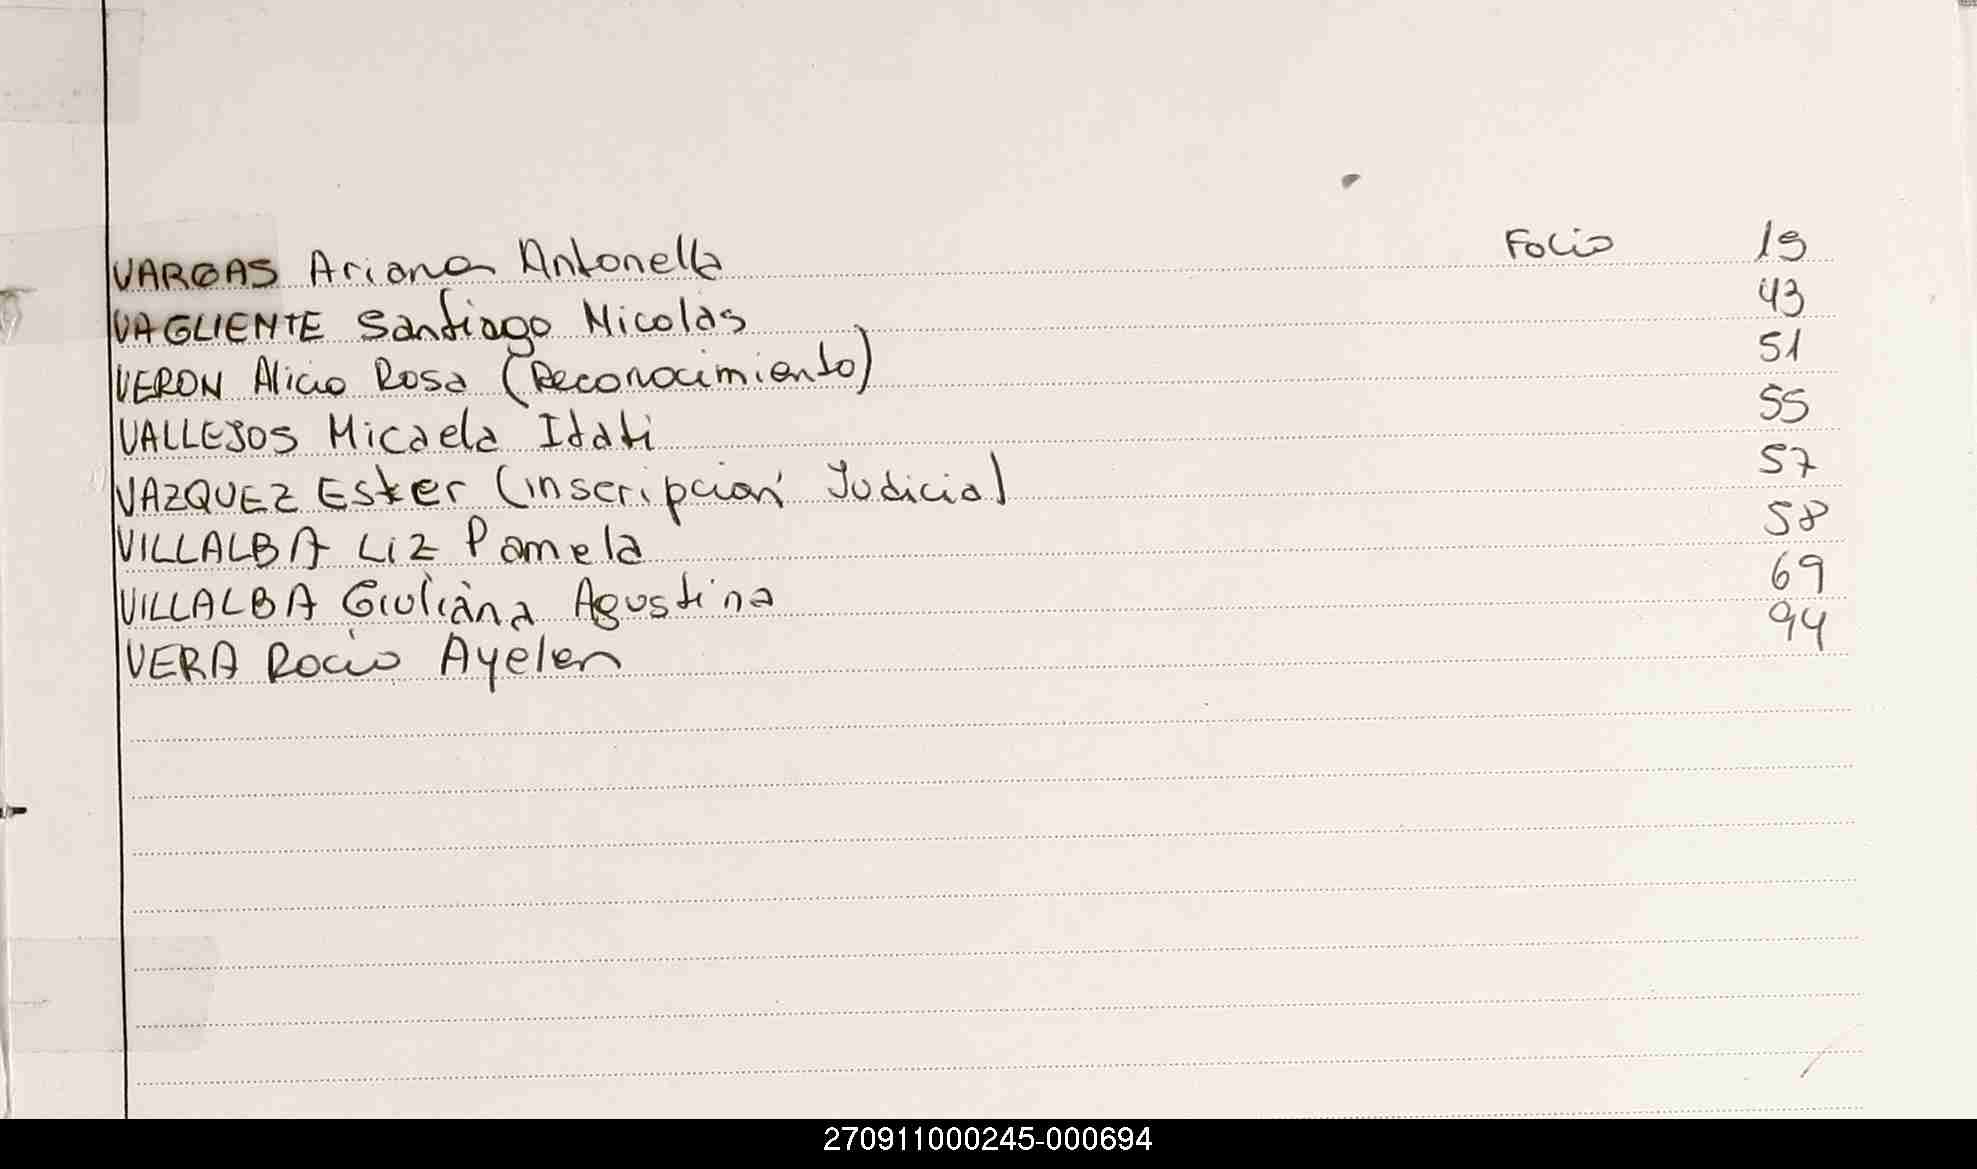 VARGAS Ariana Antonella Folio 19
VAGLIENTE Santiago Nicolás 43
VERON Alicia Rosa (Reconocimiento) 51
VALLEJOS Micaela Itatí 55
VAZQUEZ Ester (inscripción Judicial) 57
VILLALBA Liz Pamela 58
VILLALBA Giuliana Agustina 69
VERA Rocío Ayelen 94
270911000245-000694